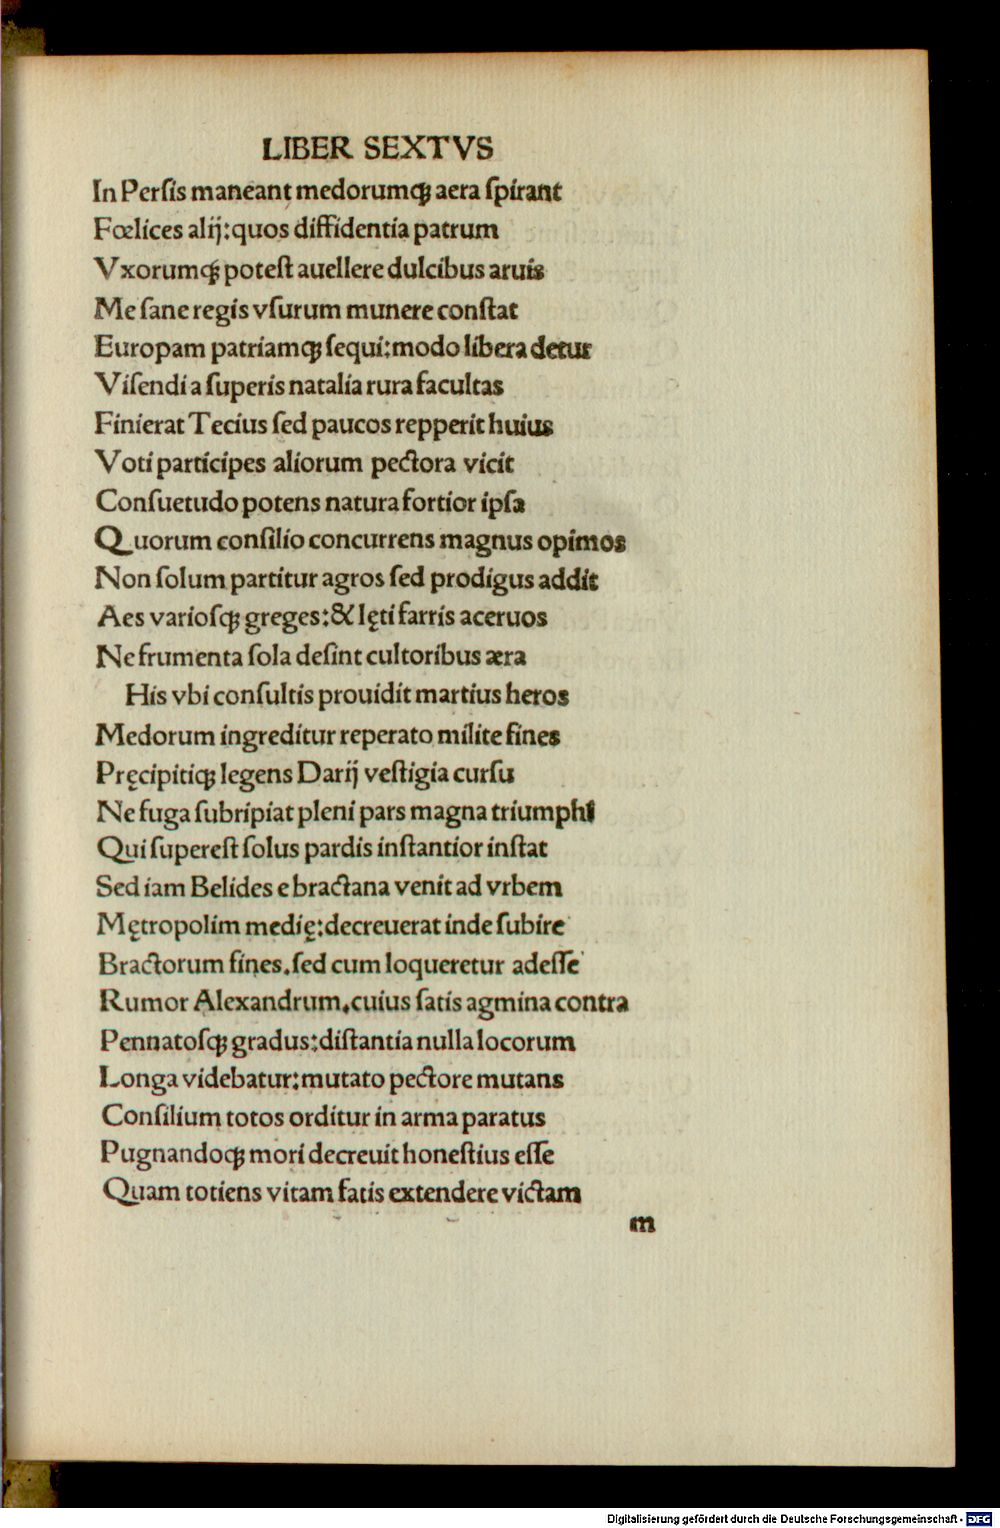 LIBER SEXTVS
In Perſis maneant medorumqꝫ aera ſpirant
Fœlices alij:quos diffidentia patrum
Vxorumqꝫ poteſt auellere dulcibus aruis
Me ſane regis vſurum munere conſtat
Europam patriamqꝫ ſequi:modo libera detur
Viſendi a ſuperis natalia rura facultas
Finierat Tecius ſed paucos repperit huius
Voti participes aliorum pectora vicit
Conſuetudo potens natura fortior ipſa
Quorum conſilio concurrens magnus opimos
Non ſolum partitur agros ſed prodigus addit
Aes varioſqꝫ greges:& lęti farris aceruos
Ne frumenta ſola deſint cultoribus æra
His vbi conſultis prouidit martius heros
Medorum ingreditur reperato milite fines
Pręcipitiqꝫ legens Darij veſtigia curſu
Ne fuga ſubripiat pleni pars magna triumphi
Qui ſupereſt ſolus pardis inſtantior inſtat
Sed iam Belides e bractana venit ad vrbem
Mętropolim medię:decreuerat inde ſubire
Bractorum fines.ſed cum loqueretur adeſſe
Rumor Alexandrum.cuius ſatis agmina contra
Pennatoſqꝫ gradus:diſtantia nulla locorum
Longa videbatur:mutato pectore mutans
Conſilium totos orditur in arma paratus
Pugnandoqꝫ mori decreuit honeſtius eſſe
Quam totiens vitam fatis extendere victam
m
Digitalisierung gefördert durch die Deutsche Forschungsgemeinschaft - DFG